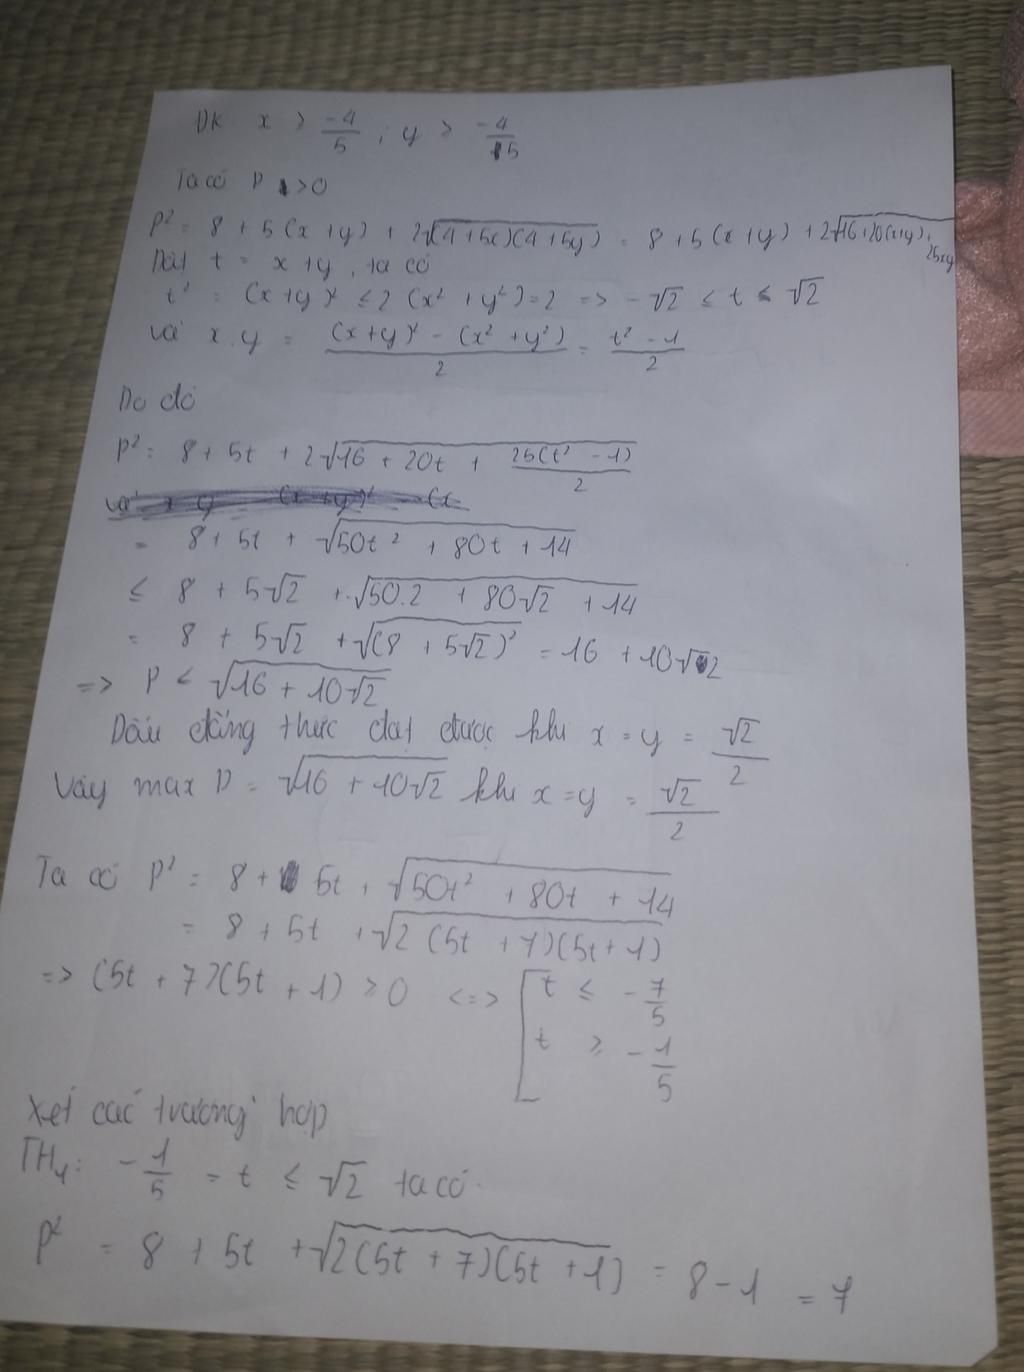 ĐK x > -4/5 ; y > -4/5
Ta có P > 0
P² = 8 + 5(x+y) + 2√(4+5x)(4+5y) = 8 + 5(x+y) + 2√16+20(x+y)+25xy
Đặt t = x+y, ta có
t² = (x+y)² ≤ 2(x² + y²) = 2 => -√2 ≤ t ≤ √2
Và x.y = (x+y)² - (x² + y²)/2 = t² - 1/2
Do đó
P² = 8 + 5t + 2√16 + 20t + 25(t² - 1)/2
= 8 + 5t + √50t² + 80t + 14
≤ 8 + 5√2 + √50.2 + 80√2 + 14
= 8 + 5√2 + √(8 + 5√2)² = 16 + 10√2
=> P < √16 + 10√2
Dấu đẳng thức đạt được khi x = y = √2/2
Vậy max P = √16 + 10√2 khi x = y = √2/2
Ta có P² = 8 + 5t + √50t² + 80t + 14
= 8 + 5t + √2(5t + 7)(5t + 1)
=> (5t + 7)(5t + 1) ≥ 0 <=> [ t ≤ -7/5
t ≥ -1/5
Xét các trường hợp
TH1: -1/5 = t ≤ √2 ta có
P² = 8 + 5t + √2(5t + 7)(5t + 1) = 8 - 1 = 7